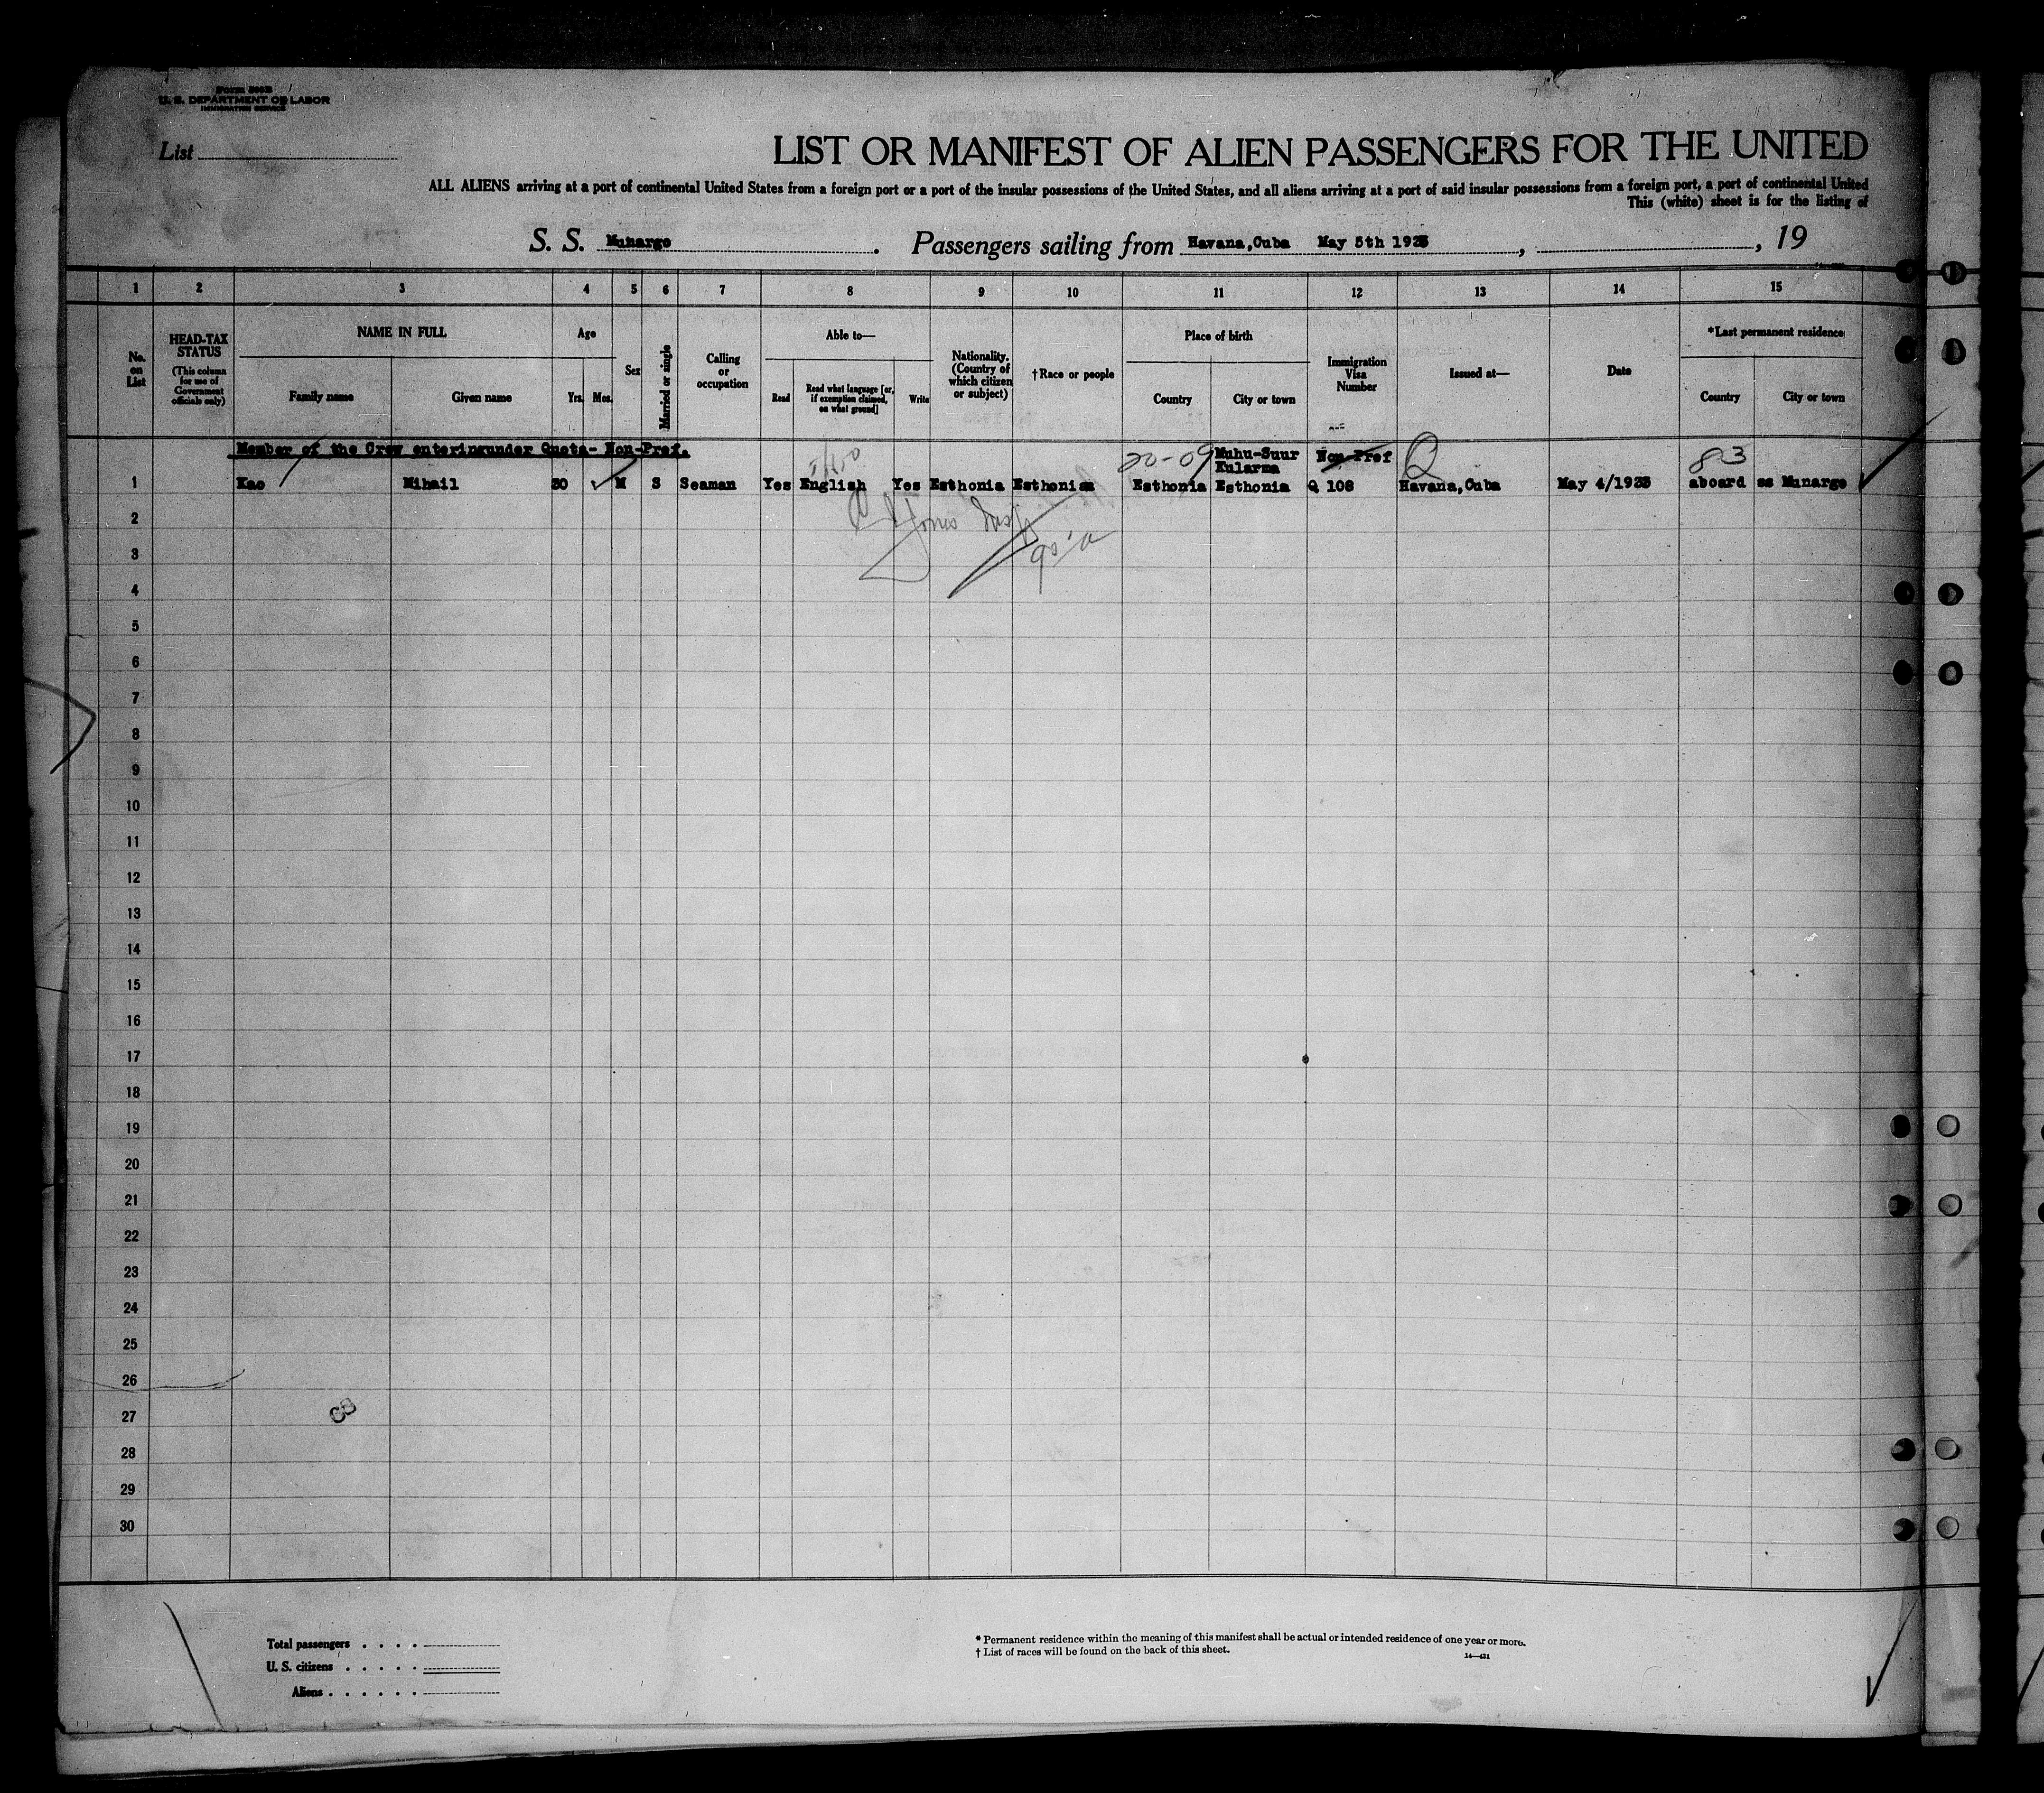 Form 500B
U. S. DEPARTMENT OF LABOR
IMMIGRATION SERVICE
List
LIST OR MANIFEST OF ALIEN PASSENGERS FOR THE UNITED
ALL ALIENS arriving at a port of continental United States from a foreign port or a port of the insular possessions of the United States, and all aliens arriving at a port of said insular possessions from a foreign port, a port of continental United
This (white) sheet is for the listing of
S. S. Munargo. Passengers sailing from Havana,Cuba May 5th 1933, , 19
1 2 3 4 5 6 7 8 9 10 11 12 13 14 15
No. on List
HEAD-TAX STATUS
(This column for use of Government officials only)
NAME IN FULL
Family name
Given name
Age
Yrs.
Mos.
Sex
Married or single
Calling or occupation
Able to—
Read
Read what language [or, if exemption claimed, on what ground]
Write
Nationality. (Country of which citizen or subject)
†Race or people
Place of birth
Country
City or town
Immigration Visa Number
Issued at—
Date
*Last permanent residence
Country
City or town
Member of the Crew enteringunder Quota- Non-Pref.
20-09 Muhu-Suur Non Pref Q 83
1 Kao Mihail 30 M S Seaman Yes English Yes Esthonia Esthonian Esthonia Esthonia Q 108 Havana,Cuba May 4/1933 aboard ss Munargo
2
3
4
5
6
7
8
9
10
11
12
13
14
15
16
17
18
19
20
21
22
23
24
25
26
27
28
29
30
Total passengers . . . .
U. S. citizens . . . . .
Aliens . . . . . .
* Permanent residence within the meaning of this manifest shall be actual or intended residence of one year or more.
† List of races will be found on the back of this sheet.